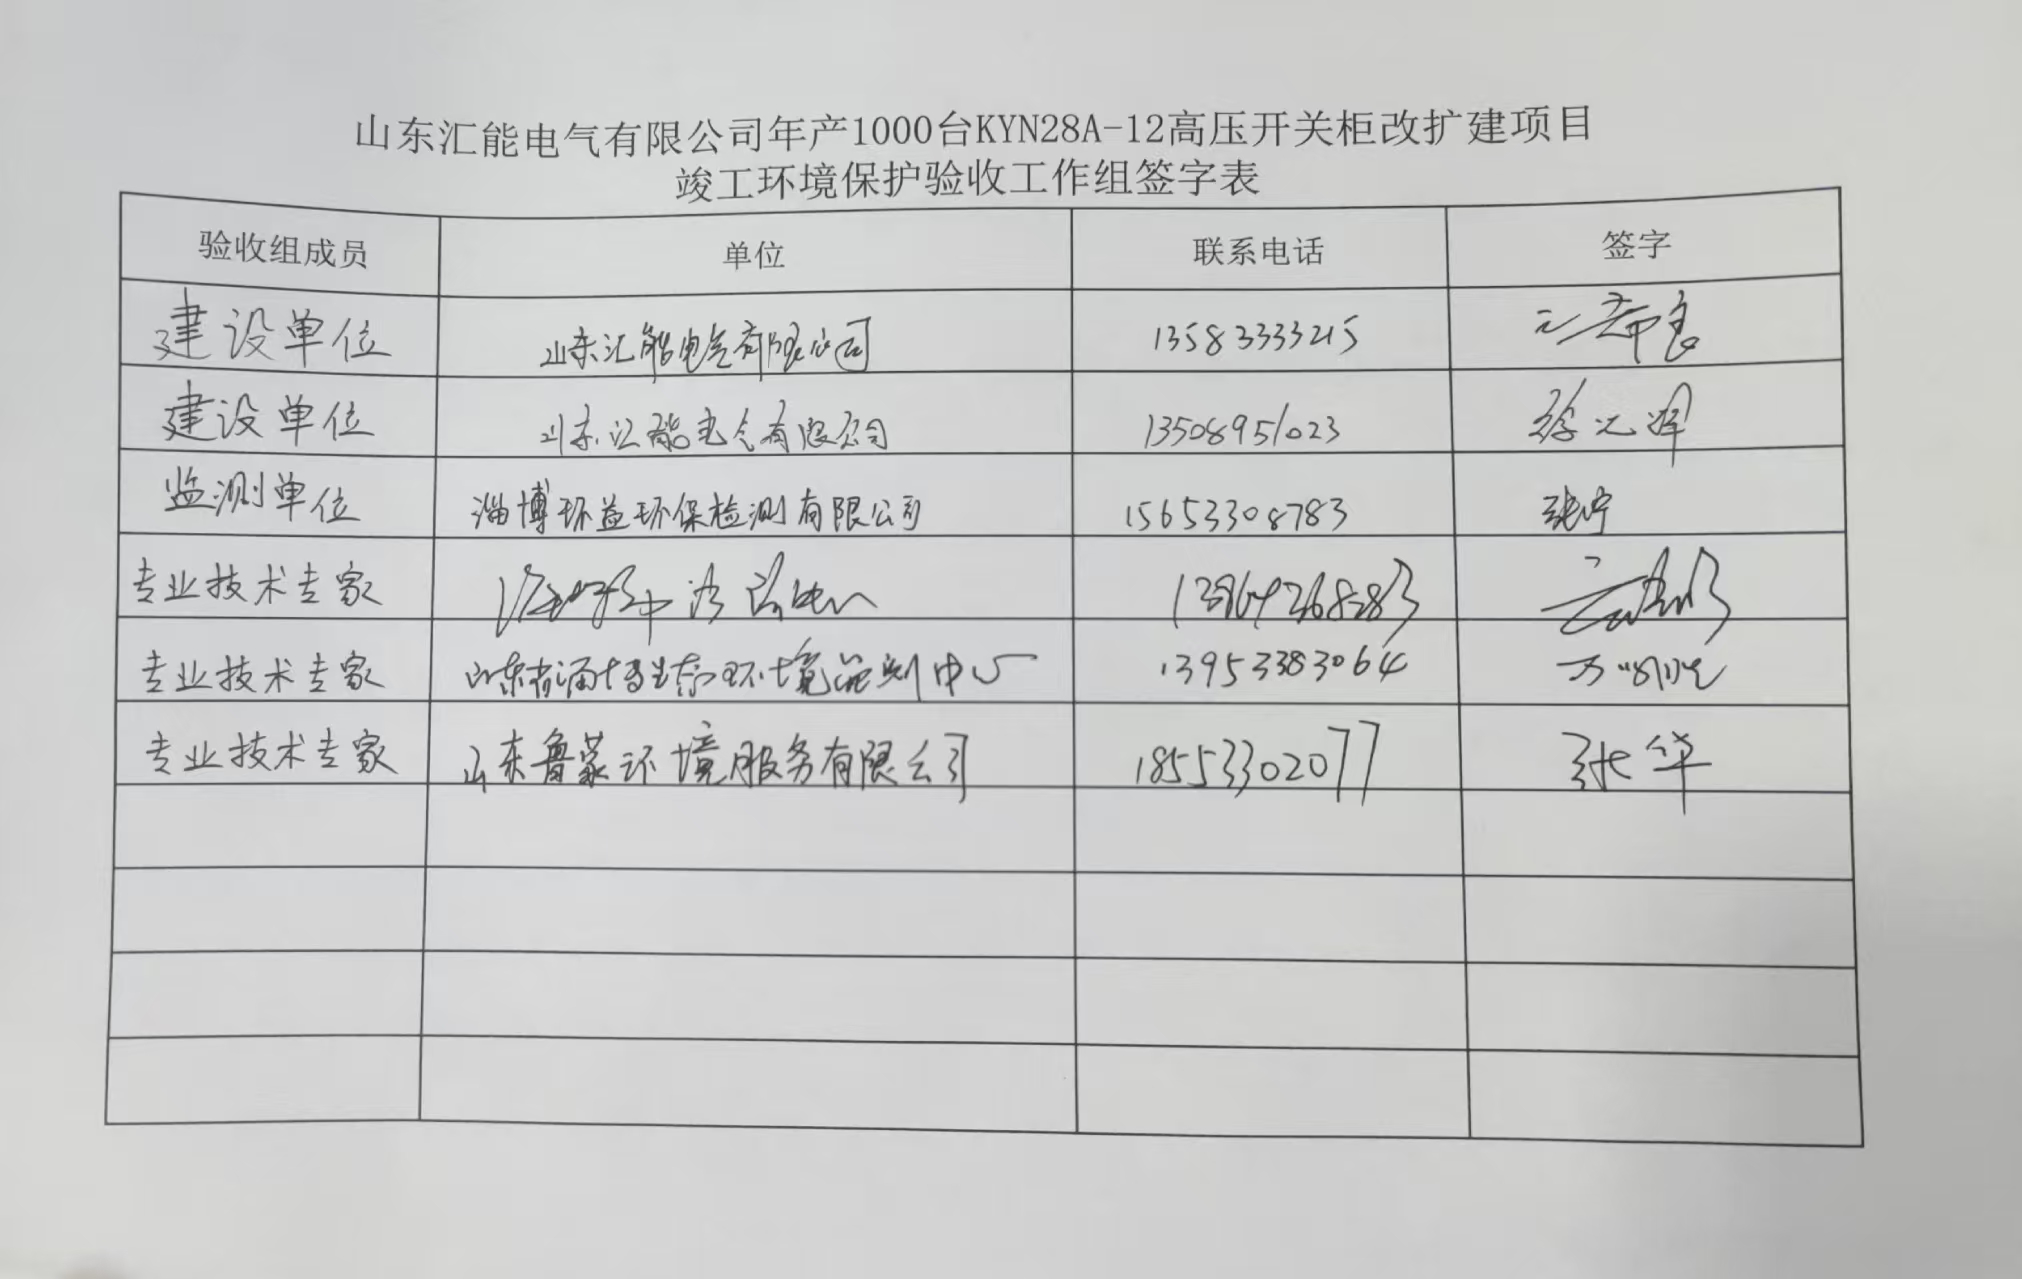 山东汇能电气有限公司年产1000台KYN28A-12高压开关柜改扩建项目
竣工环境保护验收工作组签字表
验收组成员 单位 联系电话 签字
建设单位 山东汇能电气有限公司 13583333215
建设单位 山东汇能电气有限公司 13508951023 徐元辉
监测单位 淄博环益环保检测有限公司 15653308783 张宁
专业技术专家 13964268283
专业技术专家 山东省淄博生态环境监测中心 13953383064
专业技术专家 山东鲁蒙环境服务有限公司 18553302077 张华